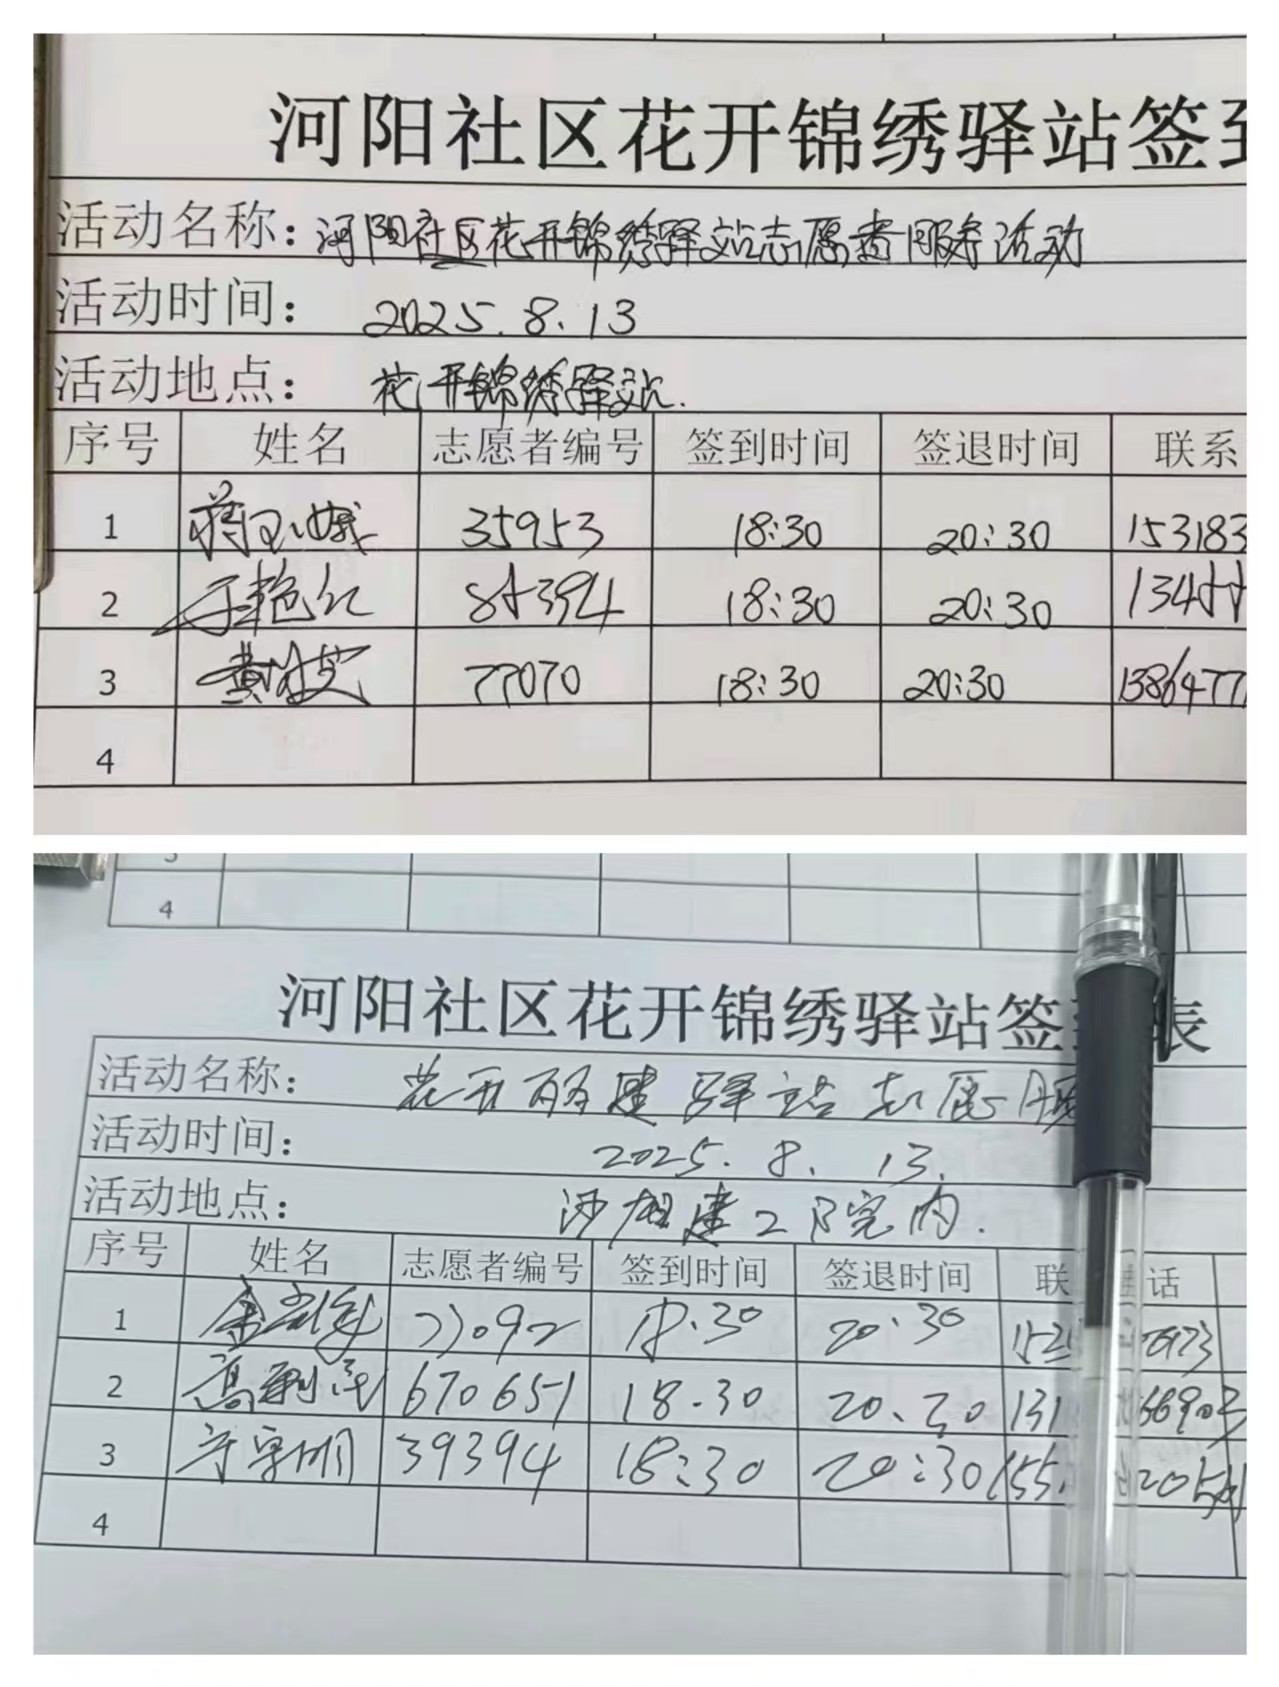 河阳社区花开锦绣驿站签到
活动名称：河阳社区花开锦绣驿站志愿者服务活动
活动时间：2025.8.13
活动地点：花开锦绣驿站.
序号 姓名 志愿者编号 签到时间 签退时间 联系
1 蒋玉娥 35953 18:30 20:30 153183
2 于艳红 18:30 20:30 134
3 黄 77070 18:30 20:30 1386477
4
4
河阳社区花开锦绣驿站签 表
活动名称： 花开丽建驿站志愿服
活动时间： 2025.8.13.
活动地点： 建 院内.
序号 姓名 志愿者编号 签到时间 签退时间 联 话
1 18:30 20:30
2 高 670651 18.30 131 66903
3 明 39394 18:30 20:30 155
4